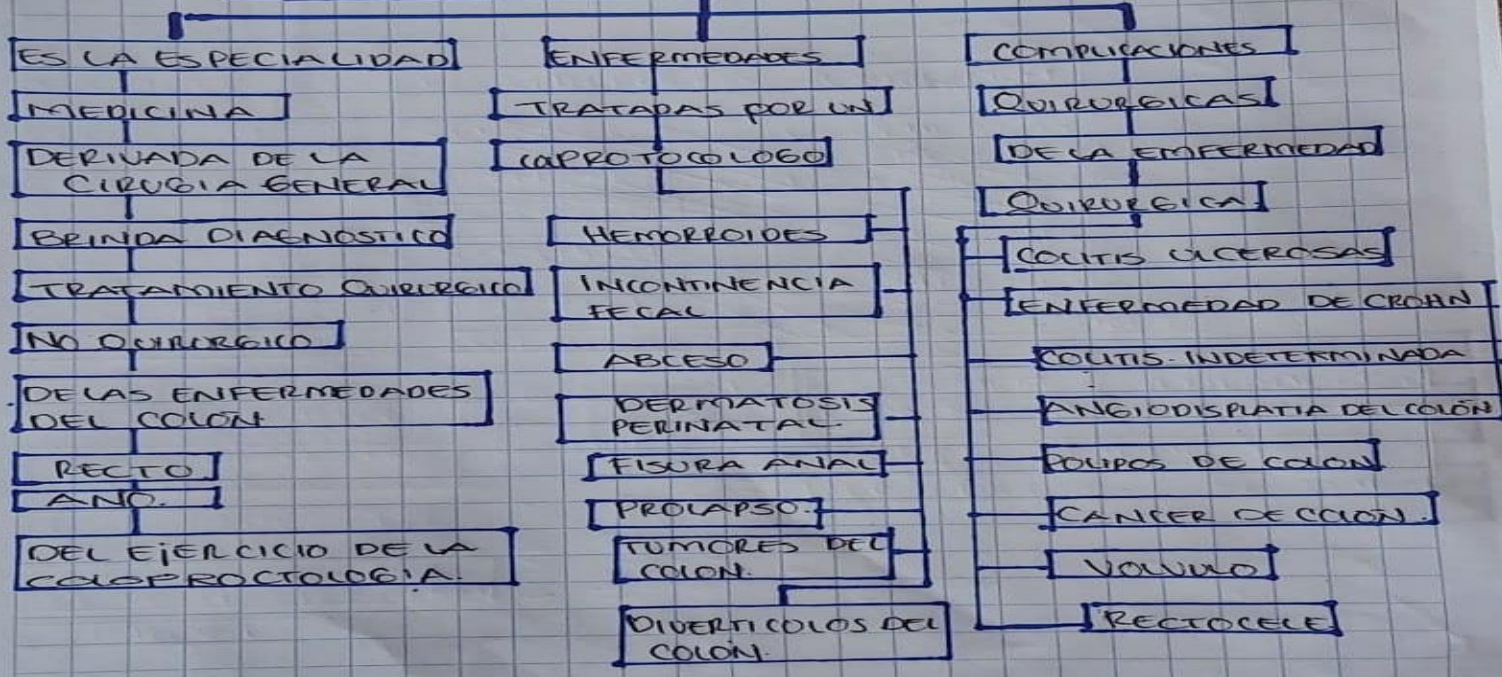 ES LA ESPECIALIDAD
MEDICINA
DERIVADA DE LA
CIRUGIA GENERAL
BRINDA DIAGNOSTICO
TRATAMIENTO QUIRURGICO
NO QUIRURGICO
DE LAS ENFERMEDADES
DEL COLON
RECTO
ANO.
DEL EJERCICIO DE LA
COLOPROCTOLOGIA.
ENFERMEDADES
TRATADAS POR UN
CAPROTOCOLOGO
HEMORROIDES
INCONTINENCIA
FECAL
ABCESO
DERMATOSIS
PERINATAL.
FISURA ANAL
PROLAPSO.
TUMORES DEL
COLON.
DIVERTICOLOS DEL
COLON.
COMPLICACIONES
QUIRURGICAS
DE LA EMFERMEDAD
QUIRURGICA
COLITIS ULCEROSAS
ENFERMEDAD DE CROHN
COLITIS INDETERMINADA
ANGIODISPLATIA DEL COLÓN
POLIPOS DE COLON
CANCER DE COLON.
VOLVULO
RECTOCELE